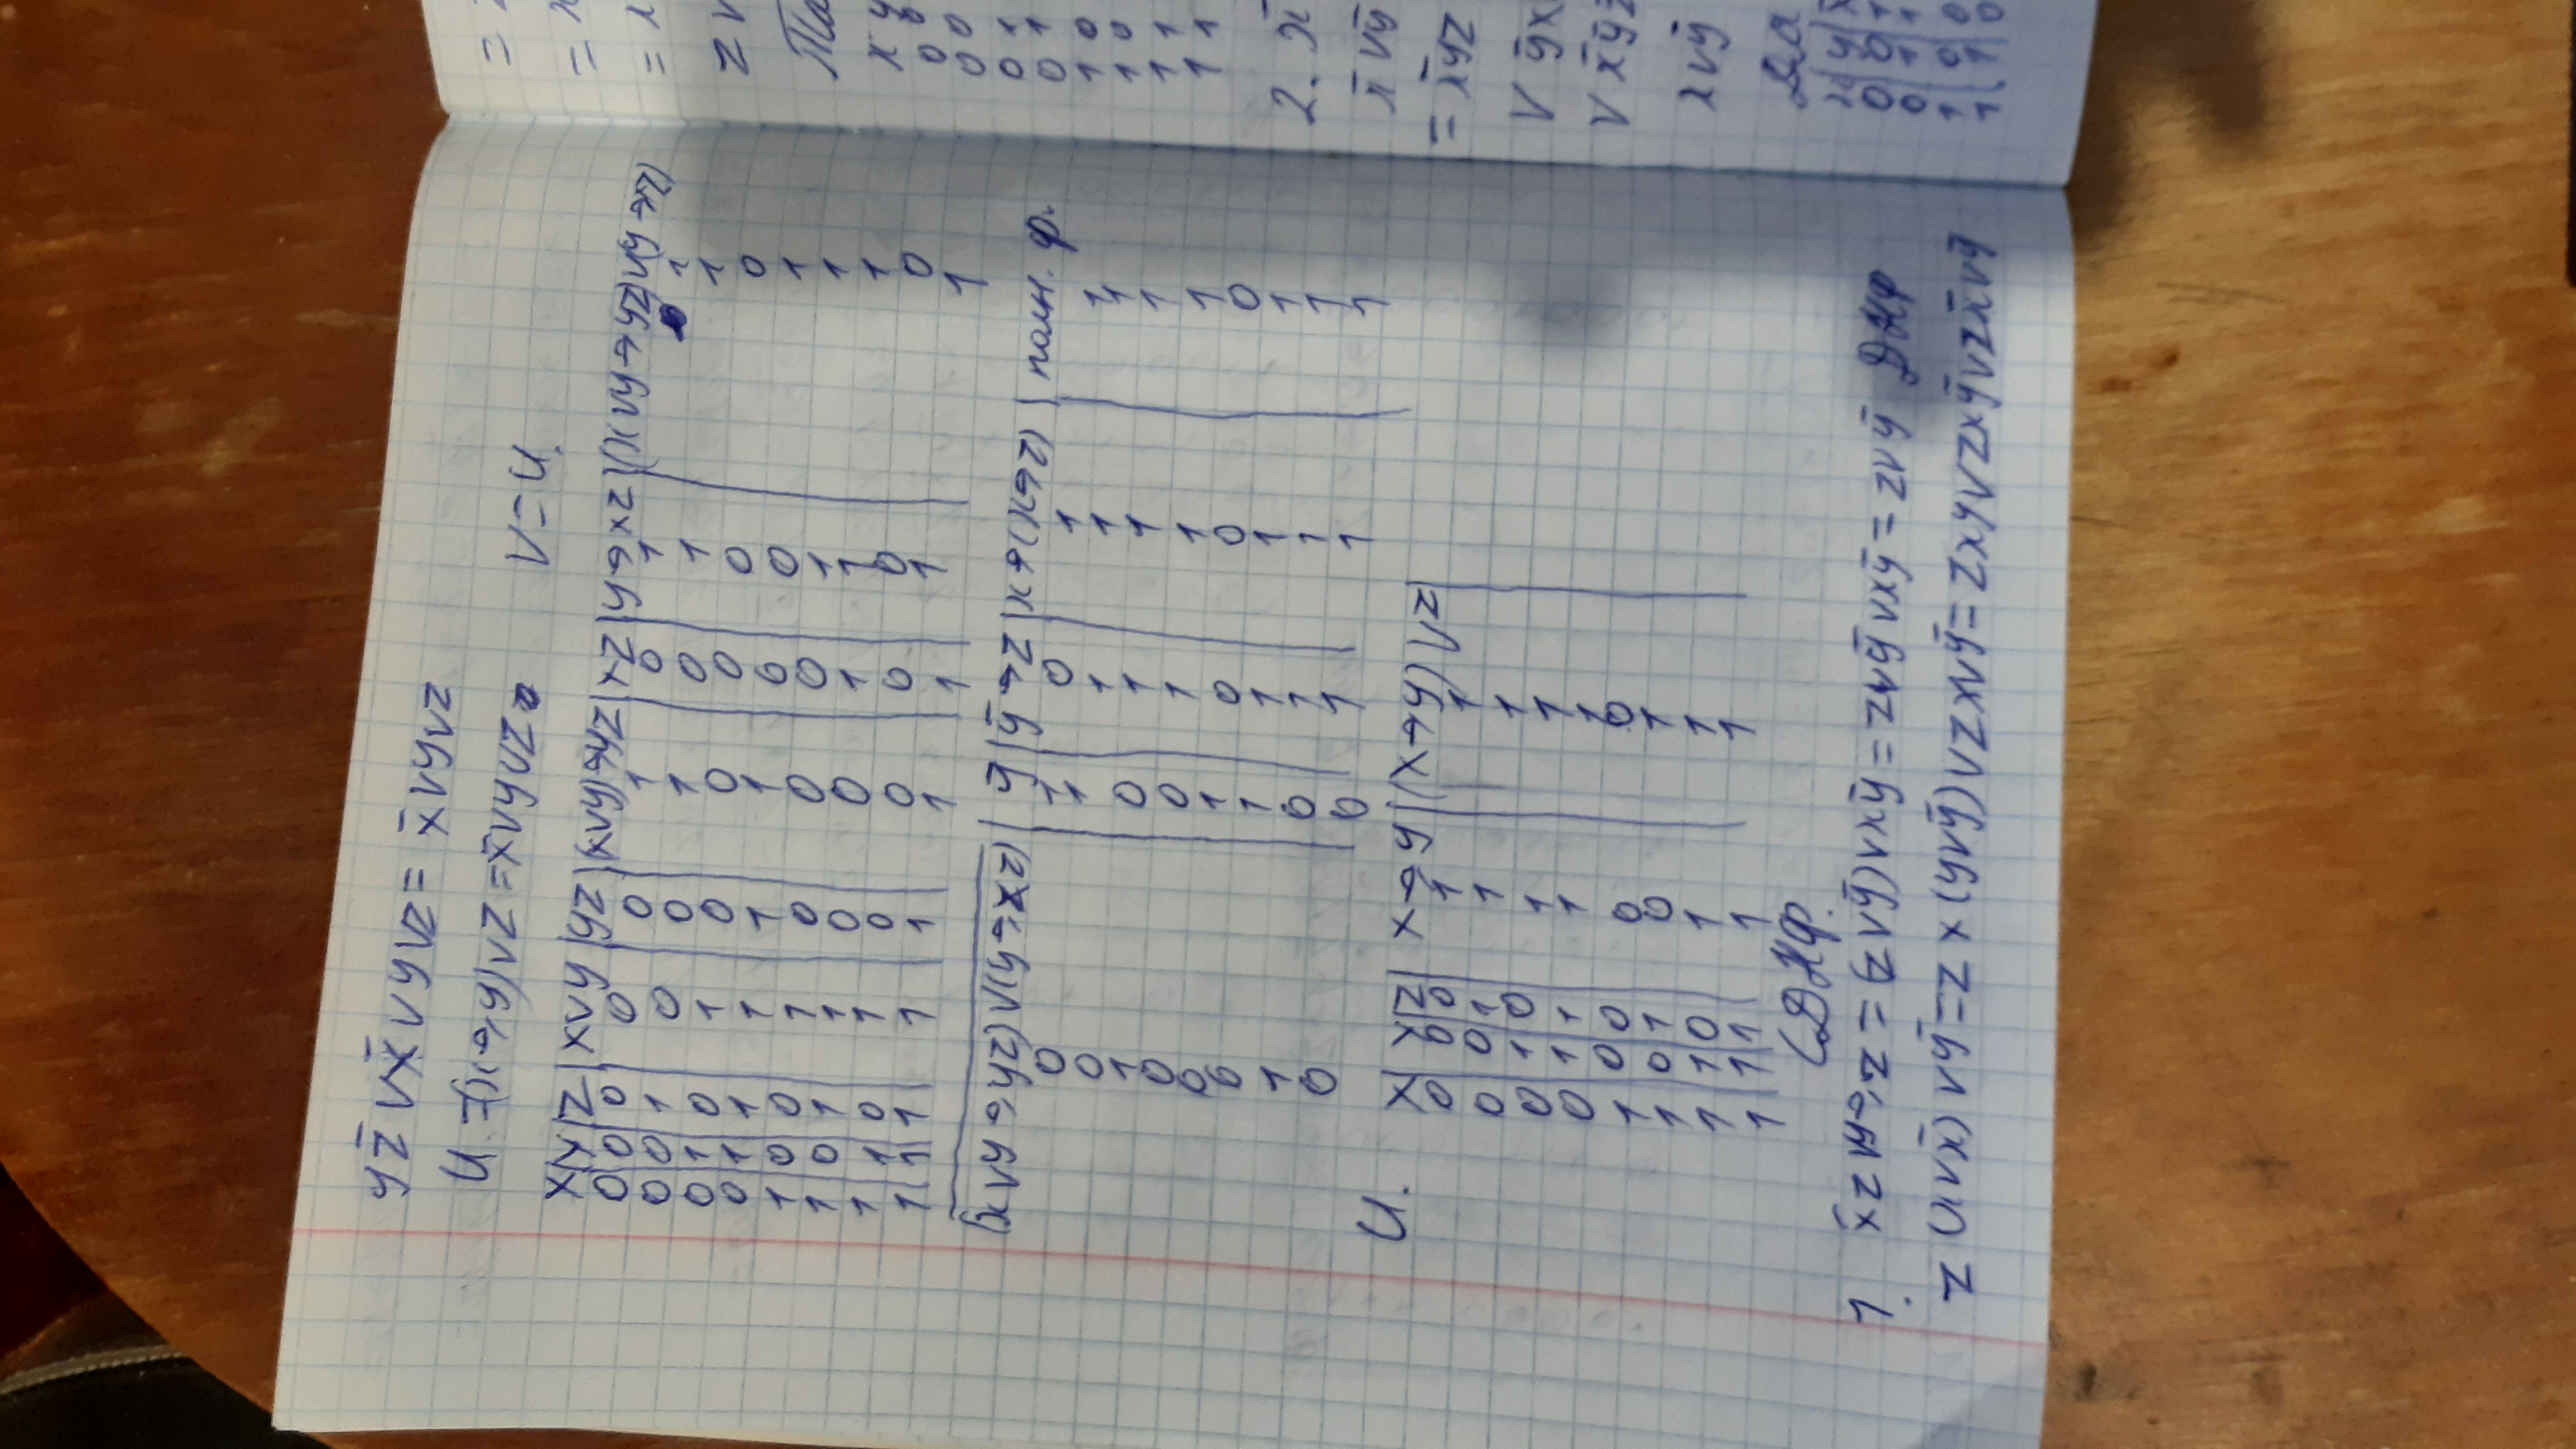 yz̄ ∨ x̄ ∨ y ∨ z = x̄ ∨ y ∨ z
U. = (x→y) ∨ z = x̄ ∨ y ∨ z
V = U.
x | y | z | x∨y | yz | (x∨y)→yz | xz | y→xz | (x∨y→yz)∨(y→xz)
0 0 0 0 0 1 0 1 1
0 0 1 0 0 1 0 1 1
0 1 0 1 0 0 0 0 0
0 1 1 1 1 1 0 0 1
1 0 0 1 0 0 0 1 1
1 0 1 1 0 0 1 1 1
1 1 0 1 0 0 0 0 0
1 1 1 1 1 1 1 1 1
(x∨y→yz)∨(y→xz) | ȳ | ȳ→z | x→(x→z) | полн. ф.
0 1 0 1 1
0 1 1 1 1
1 0 1 1 1
0 0 1 1 1
0 1 0 0 0
0 1 1 1 1
1 0 1 1 1
0 0 1 1 1
U.
x | y | z | x→y | (x→y)∨z
0 0 0 1 1
0 0 1 1 1
0 1 0 1 1
0 1 1 1 1
1 0 0 0 0
1 0 1 0 1
1 1 0 1 1
1 1 1 1 1
СДНФ.
1. = (z∨ȳ)∨xȳ = z∨ȳ∨xȳ = z∨ȳ ДНФ
z(x∨x̄)∨ȳ = zx(y∨ȳ)∨zx∨ȳ = zxy∨zxȳ∨zx̄∨ȳ
zv
x y
0 0
0 0
0 1
0 1
1 0
1 0
1 1
1 1
2. x̄
x̄∨ȳ
= x̄yz
∨ ȳx
∨ x̄ȳz
x∨ȳ
0 0 1
0 1 1
1 0 0
1 1 0